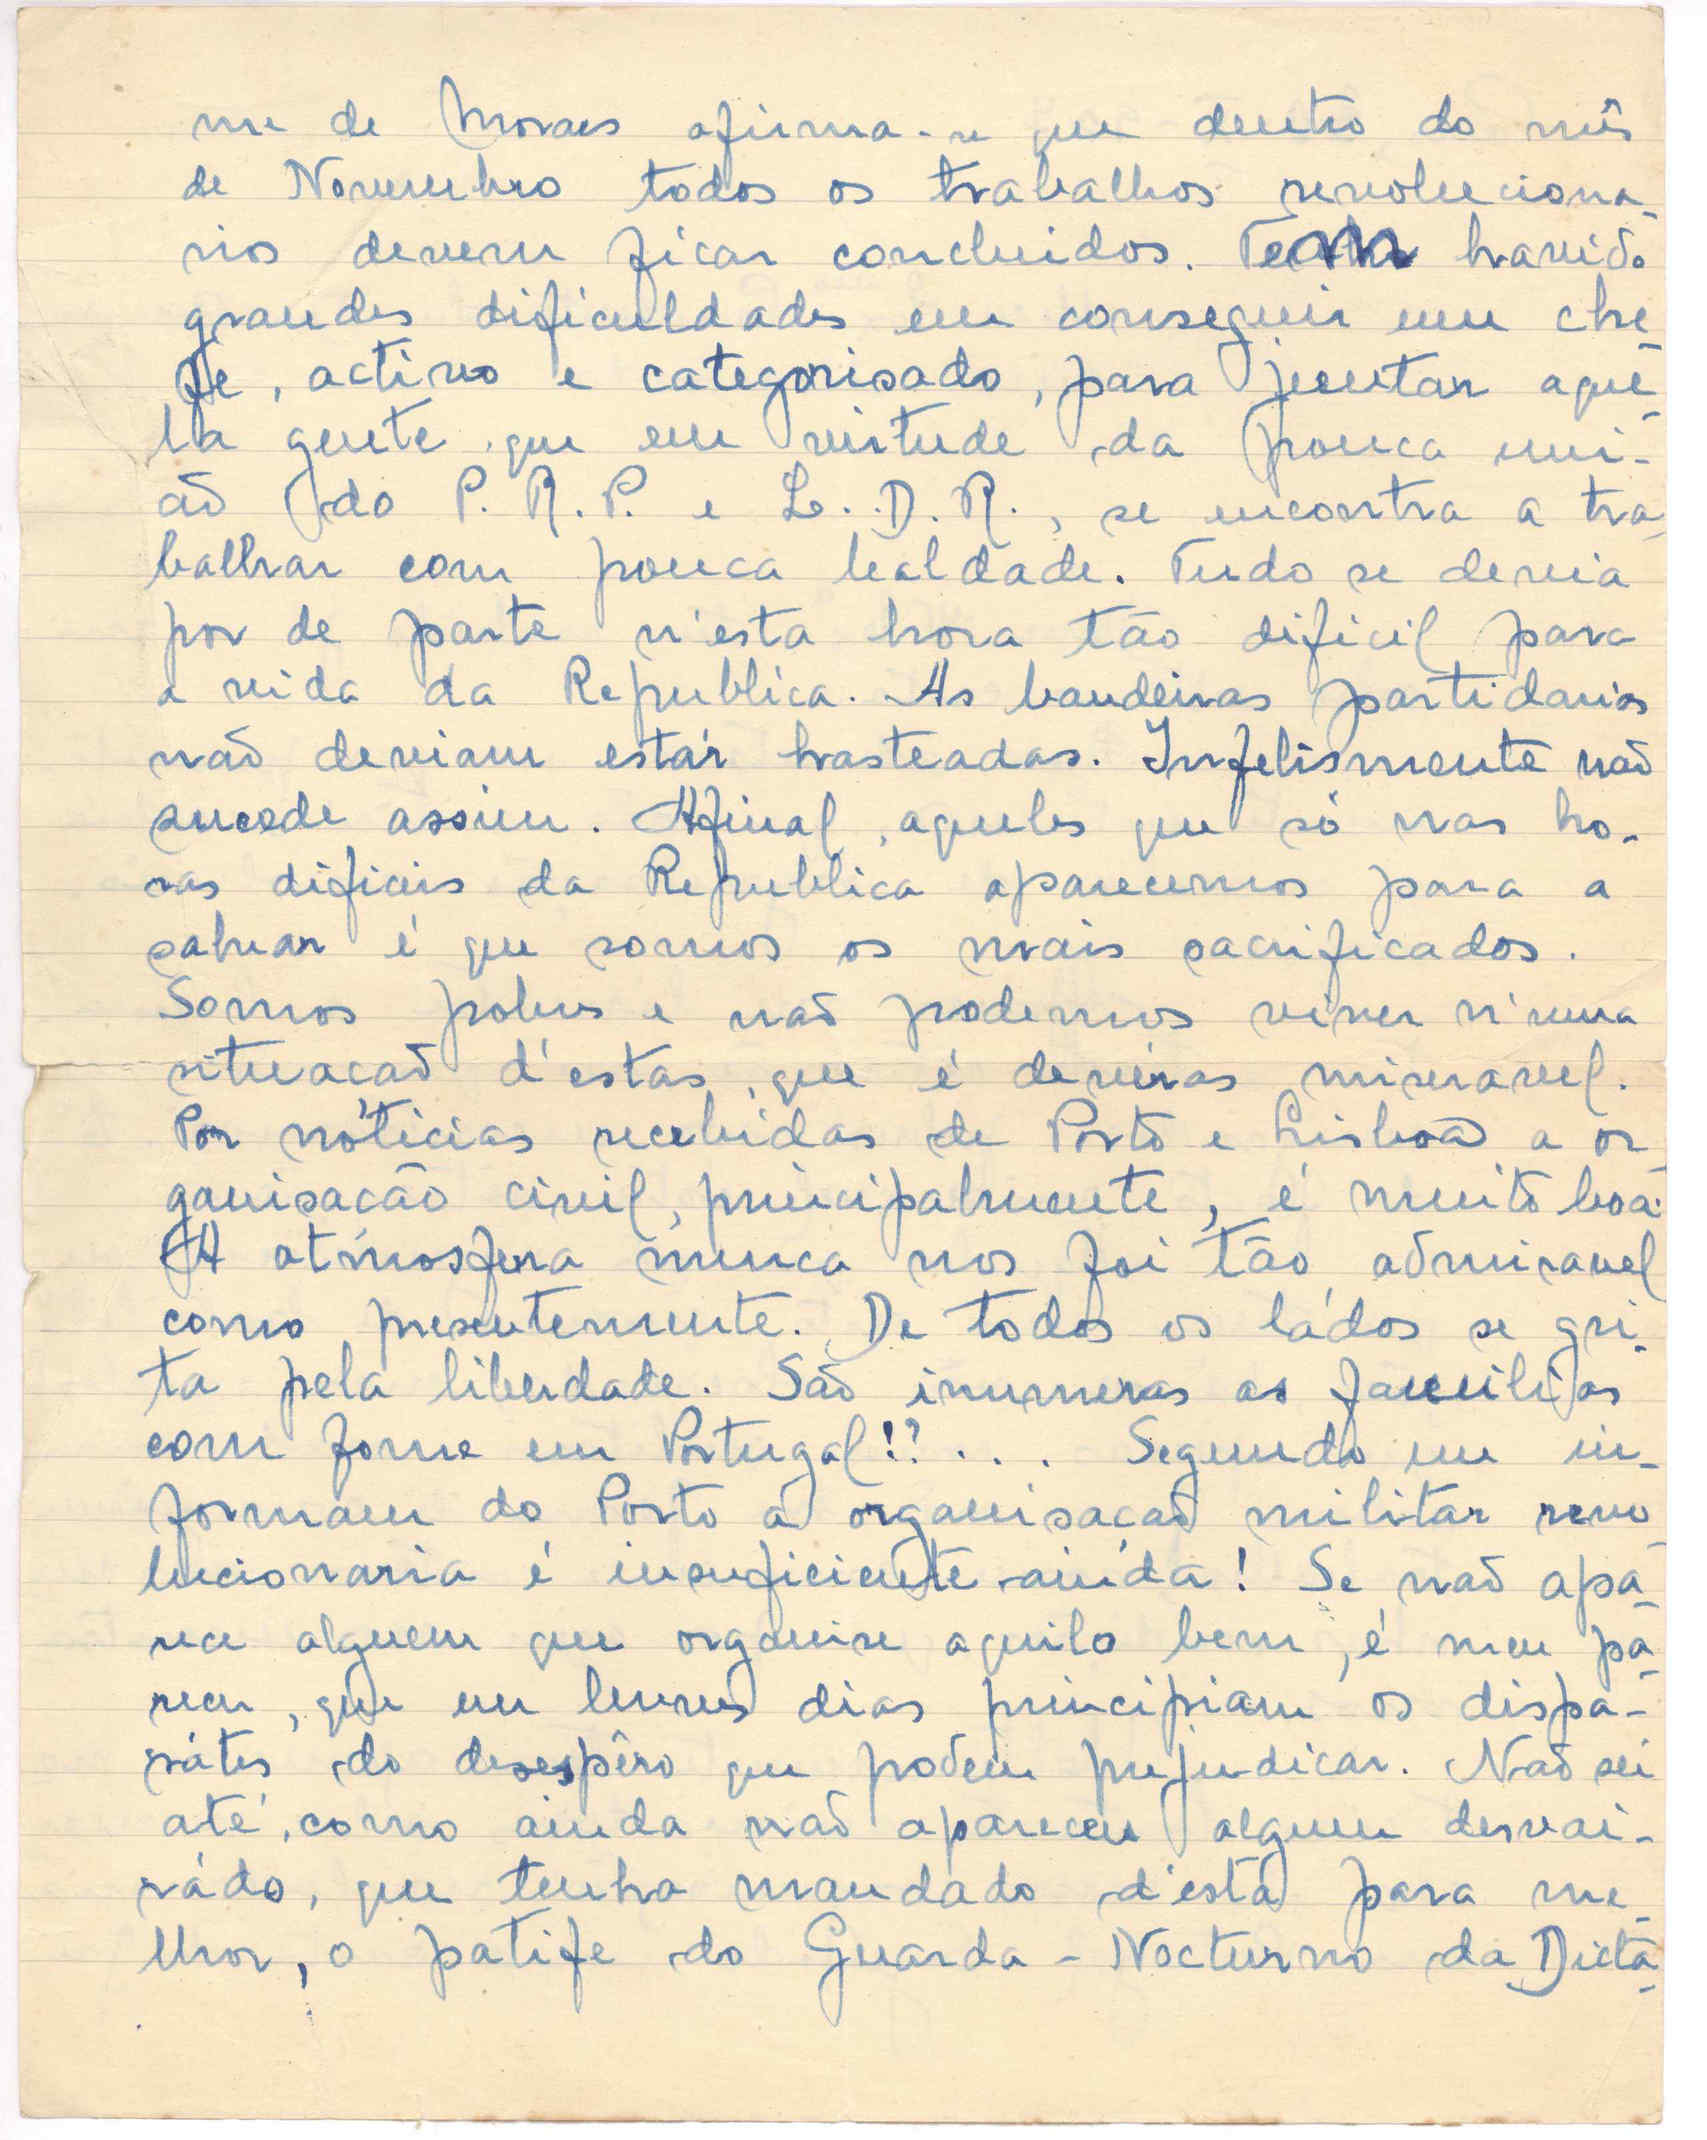 me de Moraes afirma-se que dentro do mês
de Novembro todos os trabalhos revoluciona-
rios devem ficar concluidos. Tem havido
grandes dificuldades em conseguir um che-
fe, activo e categorisado, para juntar aque-
la gente que em virtude da pouca uni-
ão do P. R. P. e L. D. R., se encontra a tra-
balhar com pouca lealdade. Tudo se devia
por de parte n'esta hora tão dificil para
a vida da Republica. As bandeiras partidarias
não deviam estár hasteadas. Infelismente não
sucede assim. Afinal, aqueles que só nas ho-
ras dificeis da Republica aparecemos para a
salvar é que somos os mais sacrificados.
Somos pobres e não podemos viver n'uma
situacão d'estas, que é devéras miseravel.
Por nóticias recebidas de Porto e Lisboa a or-
ganisacão civil, principalmente, é muito boa.
A atmosfera nunca nos foi tão admiravel
como presentemente. De todos os ládos se gri-
ta pela liberdade. São inumeras as familias
com fome em Portugal!?... Segundo me in-
formam do Porto a organisacão militar revo-
lucionaria é insuficiente ainda! Se não apa-
rece alguem que organise aquilo bem, é meu pa-
recer, que em breves dias principiam os dispa-
rátes do desespêro que podem prejudicar. Não sei
até, como ainda não apareceu algum desvai-
rádo, que tenha mandado d'esta para me-
lhor, o patife do Guarda-Nocturno da Dicta-